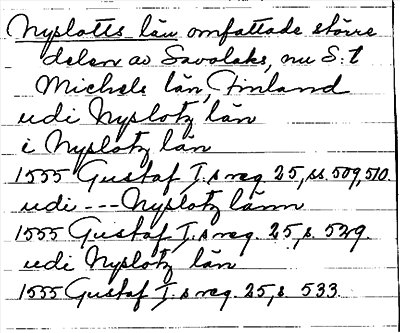 Nyslotts län omfattade större
delen av Savolaks, nu S:t
Michels län, Finland
udi Nyslotz län
i Nyslotz län
1555 Gustaf I:s reg. 25, ss. 509, 510.
udi --- Nyslotz länn
1555 Gustaf I:s reg. 25, s. 529.
udi Nyslotz län
1555 Gustaf I:s reg. 25, s. 533.